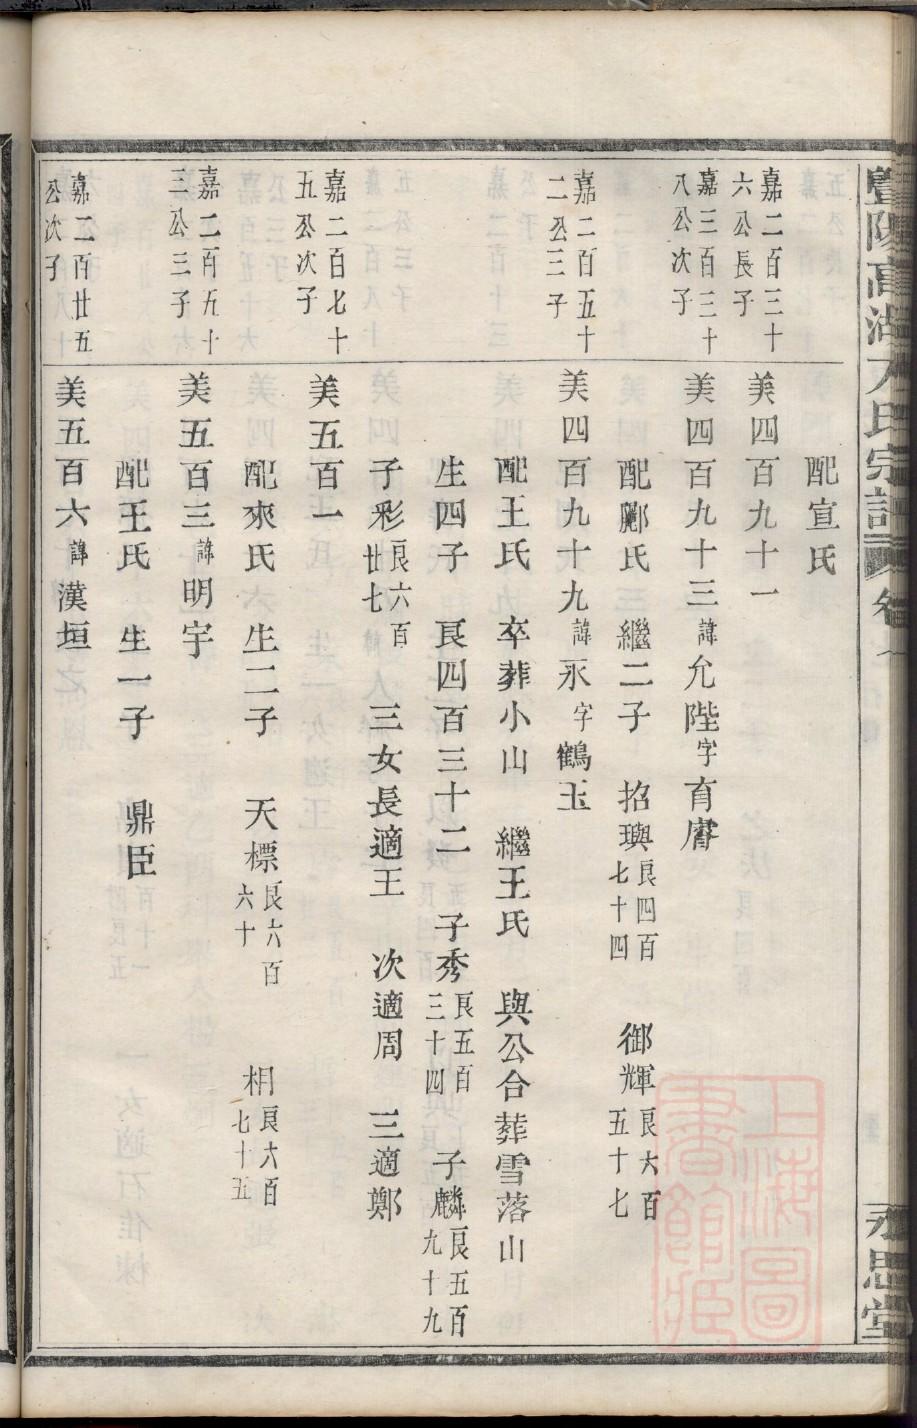 暨陽高湖方氏宗譜 卷
永思堂
配宣氏
嘉二百三十六公長子
美四百九十一
嘉三百二十八公次子
美四百九十三諱允陛字育膺
配酈氏 繼二子 招璵良四百七十四 御輝良六百五十七
嘉二百五十二公三子
美四百九十九諱永字鶴玉
配王氏 卒葬小山 繼王氏 與公合葬雪落山
生四子 良四百三十二 子秀良五百三十四 子麟良五百九十九
子彩良六百廿七 三女長適王 次適周 三適鄭
嘉二百七十五公次子
美五百一
配來氏 生二子 天標良六百六十 相良六百七十五
嘉二百五十三公三子
美五百三諱明宇
配王氏 生一子 鼎臣
嘉二百廿五公次子
美五百六諱漢垣
上海圖書館藏